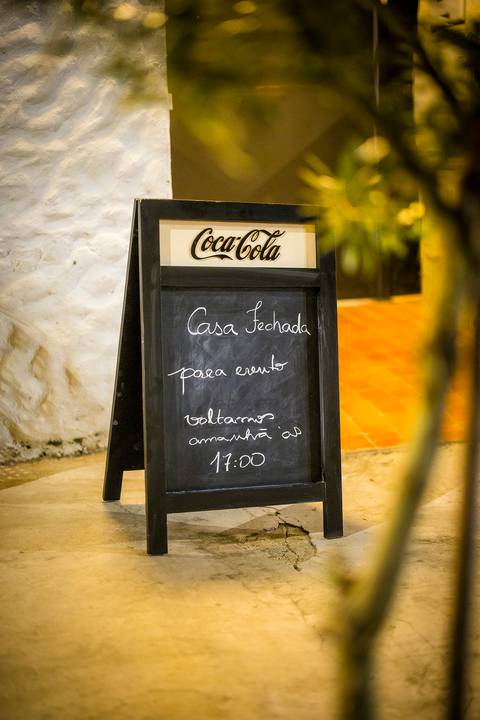 Coca-Cola
Casa Fechada
para evento
voltamos
amanhã às
17:00